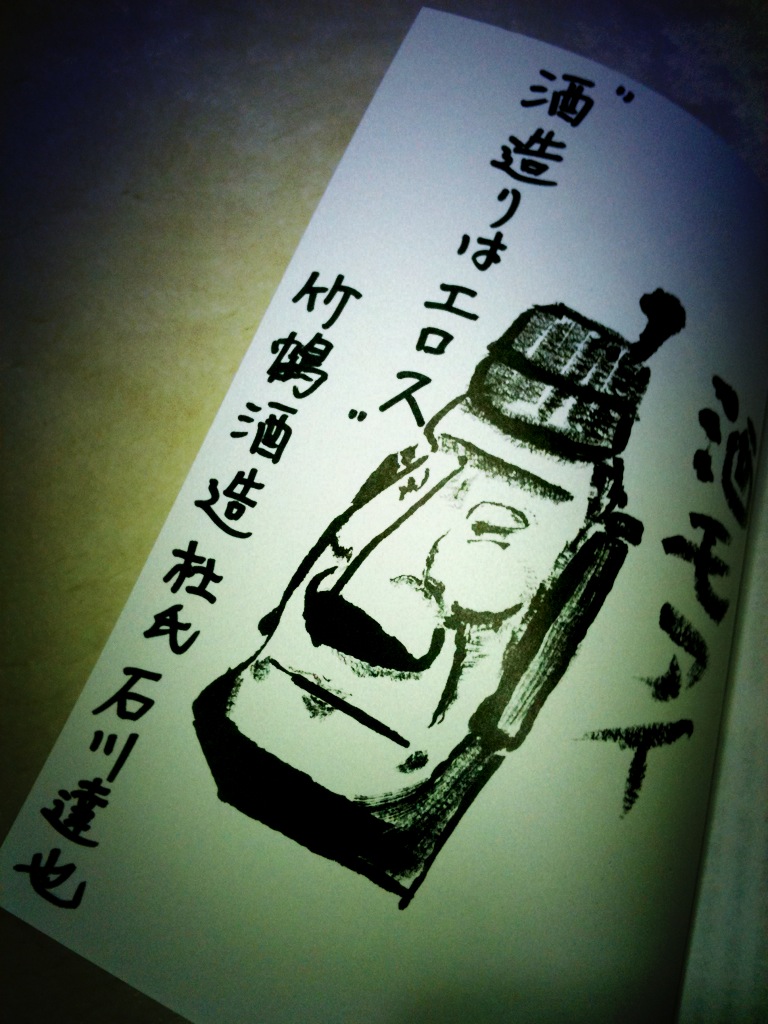 酒モアイ
"酒造りはエロス"
竹鶴酒造 杜氏 石川達也